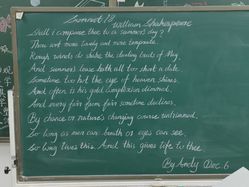 Sonnet 18
William Shakespeare
Shall I compare thee to a summers day?
Thou art more lovely and more temperate.
Rough winds do shake the darling buds of May
And summers lease hath all too short a date.
Sometime too hot the eye of heaven shines
And often is his gold complexion dimmed,
And every fair from fair sometime declines,
By chance or nature's changing course untrimmed.
So long as men can breath or eyes can see.
So long lives this. And this gives life to thee
By Andy Dec. 6